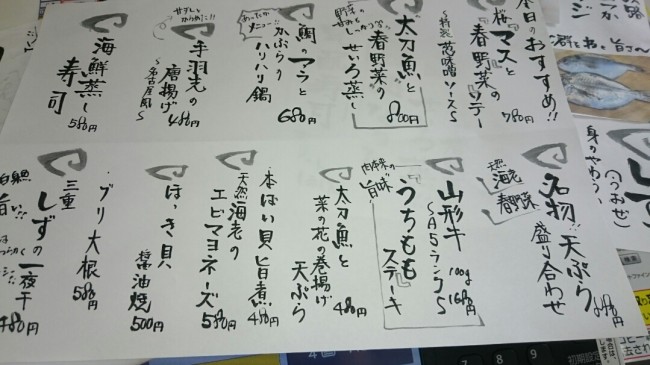 本日のおすすめ!!
桜マスと
春野菜のソテー
~特製葱味噌ソース~
780円
野菜の
太刀魚と
春野菜の
せいろ蒸し
800円
あったか
メニュー
鯛のアラと
かぶらの
ハリハリ鍋
680円
サラッと
からめに!!
手羽先の
唐揚げ
~名古屋風~
480円
海鮮蒸し
寿司
580円
天然
海老
春野菜
名物!!天ぷら
盛り合わせ
山形牛
~A5ランク~
100g
1680円
肉本来の
旨味
うちもも
ステーキ
太刀魚と
菜の花の巻揚げ
天ぷら
480円
本ばい貝旨煮
480円
天然海老の
エビマヨネーズ
580円
ほっき貝
醤油焼
500円
ブリ大根
580円
三重
しずの一夜干
480円
白身魚
旨い!!
身がやわらかい
(うおぜ)
しず